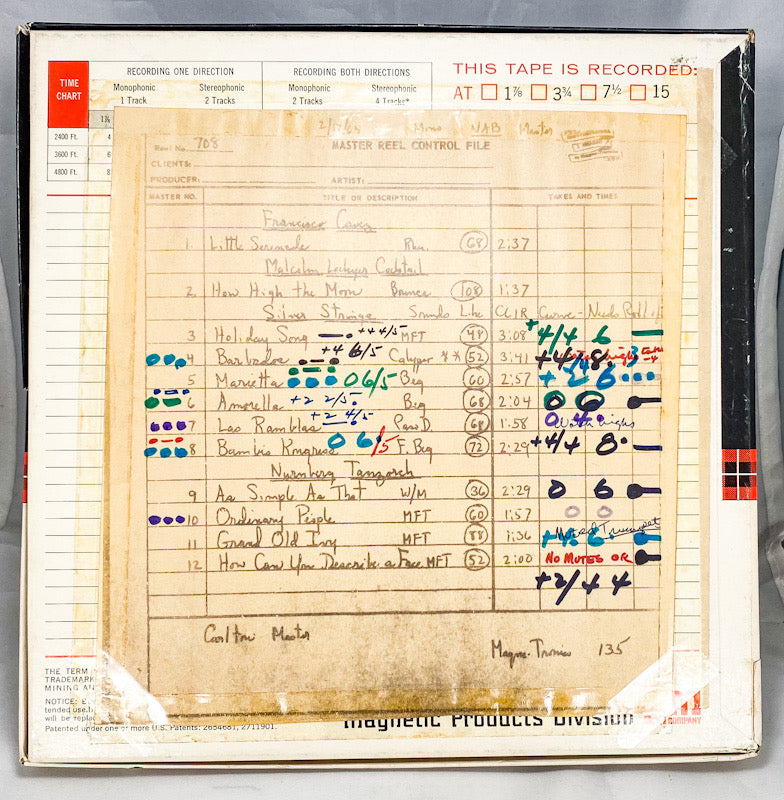 THIS TAPE IS RECORDED:
AT 1⅞ 3¾ 7½ 15
TIME CHART
RECORDING ONE DIRECTION RECORDING BOTH DIRECTIONS
Monophonic Stereophonic Monophonic Stereophonic
1 Track 2 Tracks 2 Tracks 4 Tracks*
2400 Ft. 4
3600 Ft. 6
4800 Ft. 8
Mono NAB Master
Reel No. 708 MASTER REEL CONTROL FILE
CLIENTS:
PRODUCER: ARTIST:
MASTER NO. TITLE OR DESCRIPTION TAKES AND TIMES
Francisco Cavez
1. Little Serenade Rhu. 68 2:37
Malcolm Lockyer Cocktail
2. How High the Moon Bounce 108 1:37
Silver Strings Sounds Like CLIR Curve - Needs Roll off
3 Holiday Song +4 4/5 MFT 48 3:08 +4/4 6
4 Barbados +4 6/5 Calypso ** 52 3:41 +4/4 8.
5 Marietta 0 6/5 Beg 60 2:57 +2 6
6 Amorella +2 2/5 Beg 68 2:04 0 6
7 Las Ramblas +2 4/5 Paso D. 68 1:58 0 4
8 Bambis Kongress 0 6 /5 F. Beg 72 2:29 +4/4 8
Nurnberg Tanzorch
9 As Simple As That W/M 36 2:29 0 6
10 Ordinary People MFT 60 1:57 0 0
11 Grand Old Ivy MFT 88 1:36 Muted Trumpet +4 6
12 How Can You Describe a Face MFT 52 2:00 NO MUTES OR
+2/4 4
Carlton Master
Magne-Tronics 135
THE TERM
TRADEMARK
MINING AN
NOTICE: E
tended use.
will be replac
Patented under one or more U.S. Patents: 2654681, 2711901.
Magnetic Products Division
COMPANY